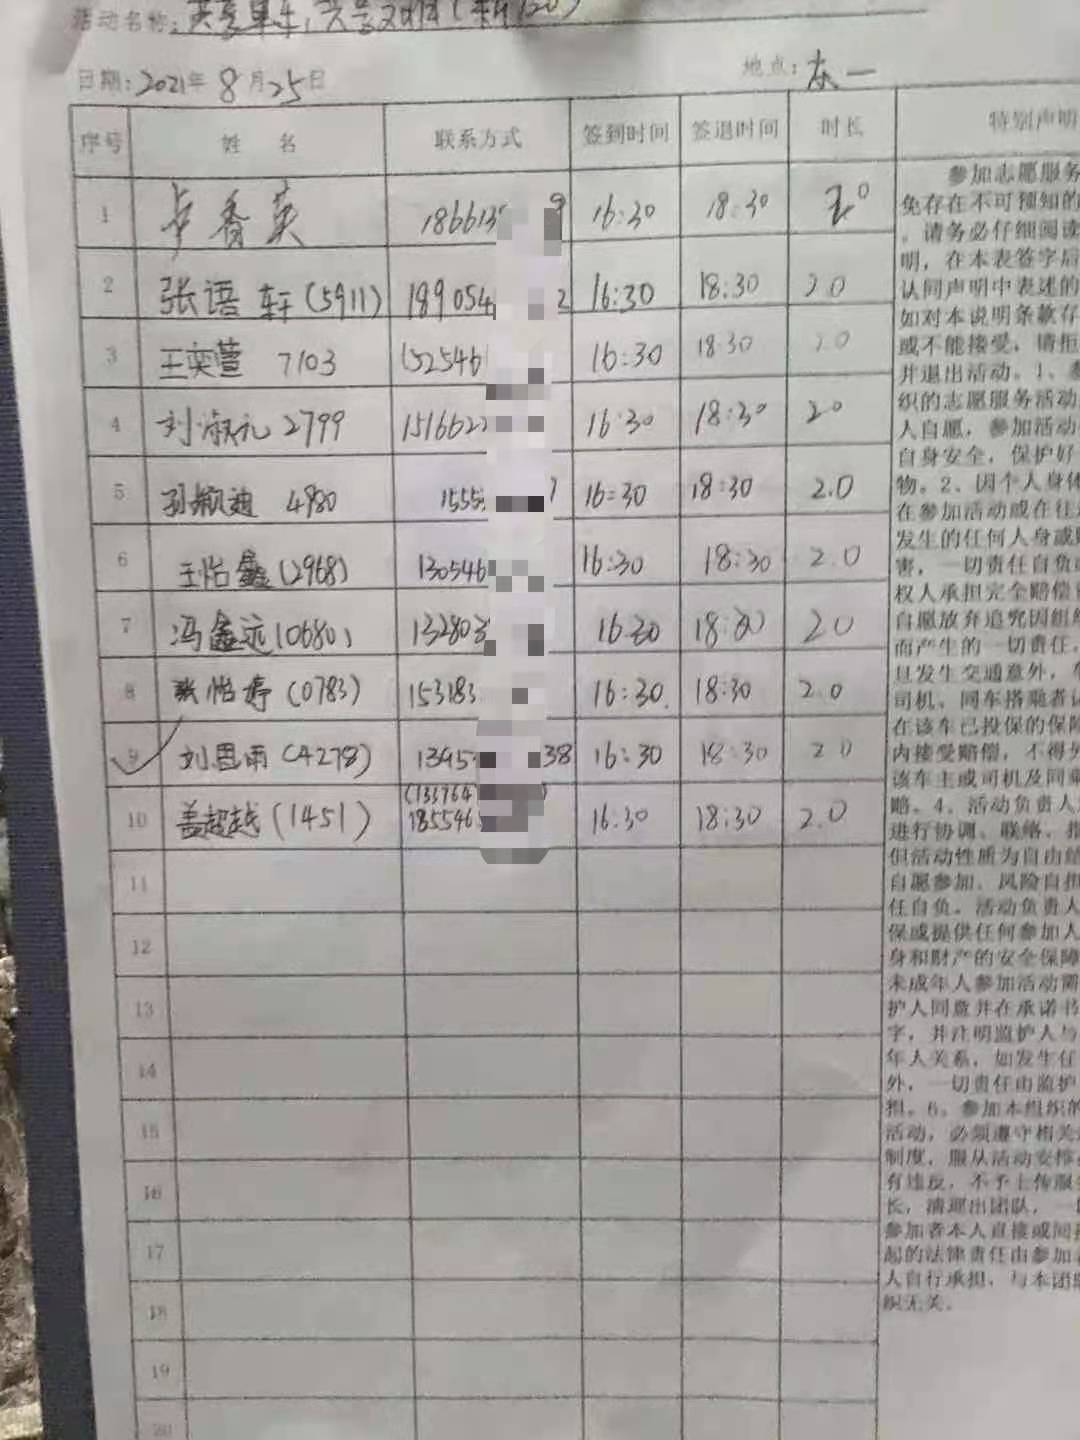 活动名称:共享单车,文明
日期:2021年8月25日
地点:东一
序号 姓 名 联系方式 签到时间 签退时间 时长 特别声明
1 卢香英 186613 9 16:30 18:30 2.0
2 张语轩(5911) 189054 2 16:30 18:30 2.0
3 王奕萱 7103 152546 16:30 18:30 2.0
4 刘淑礼 2799 1516622 16:30 18:30 2.0
5 孙颖迪 4980 1555 16:30 18:30 2.0
6 王怡鑫(2968) 130546 16:30 18:30 2.0
7 冯鑫远(0680) 132803 16:30 18:30 2.0
8 张怡婷(0783) 153183 16:30 18:30 2.0
9 刘思雨(4278) 1395 38 16:30 18:30 2.0
10 盖超越(1451) (133764 ) 185546 16:30 18:30 2.0
11
12
13
14
15
16
17
18
19
20
参加志愿服务
免存在不可预知的
。请务必仔细阅读
明,在本表签字后
认同声明中表述的
如对本说明条款存
或不能接受,请拒
并退出活动。1、参
织的志愿服务活动
人自愿,参加活动
自身安全,保护好
物。2、因个人身体
在参加活动或在往
发生的任何人身或
害,一切责任自负
权人承担完全赔偿
自愿放弃追究因组织
而产生的一切责任。
旦发生交通意外,
司机、同车搭乘者
在该车已投保的保险
内接受赔偿,不得另
该车主或司机及同乘
赔。4、活动负责人
进行协调、联络、指
但活动性质为自由结
自愿参加、风险自担
任自负。活动负责人
保或提供任何参加人
身和财产的安全保障
未成年人参加活动需
护人同意并在承诺书
字,并注明监护人与
年人关系,如发生任
外,一切责任由监护
担。6、参加本组织的
活动,必须遵守相关
制度,服从活动安排
有违反,不予上传服务
长,清理出团队,一
参加者本人直接或间接
起的法律责任由参加
人自行承担,与本团
织无关。